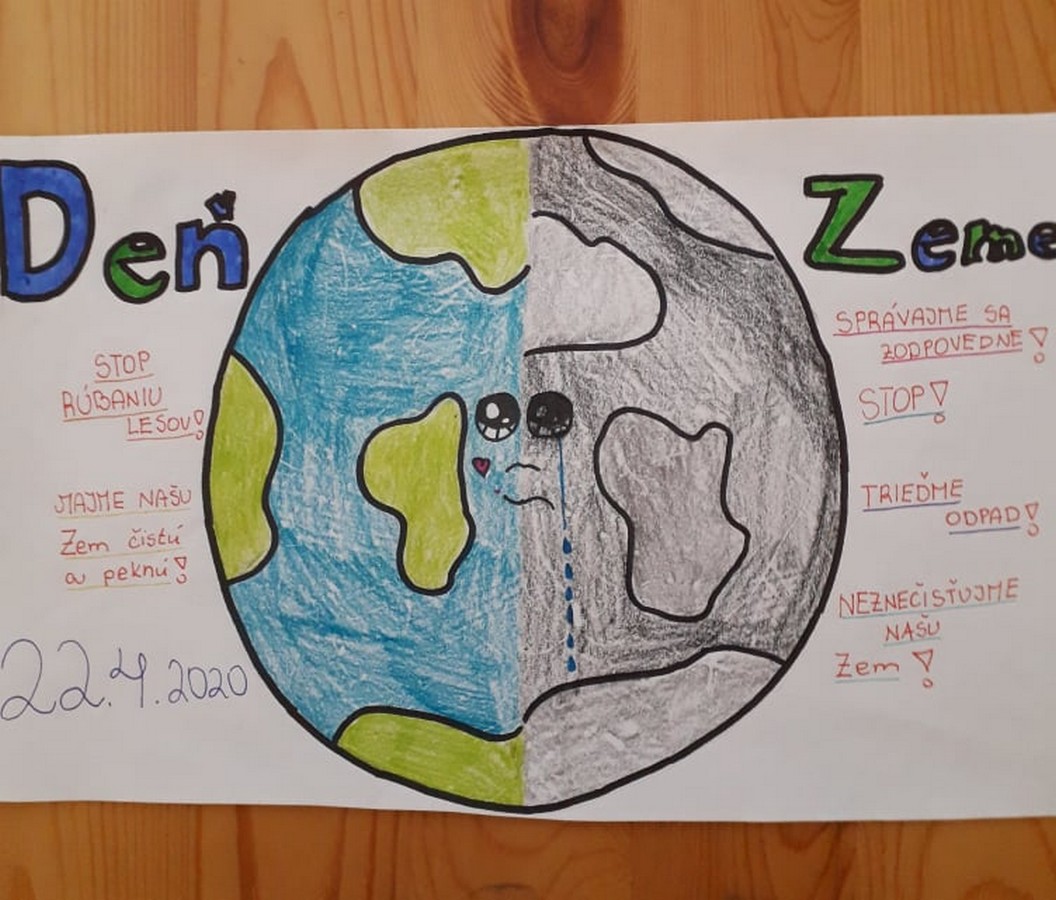 Deň Zeme
STOP
RÚBANIU
LESOV!
MAJME NAŠU
Zem čistú
a peknú!
22.4.2020
SPRÁVAJME SA
ZODPOVEDNE!
STOP!
TRIEĎME
ODPAD!
NEZNEČISŤUJME
NAŠU
Zem!